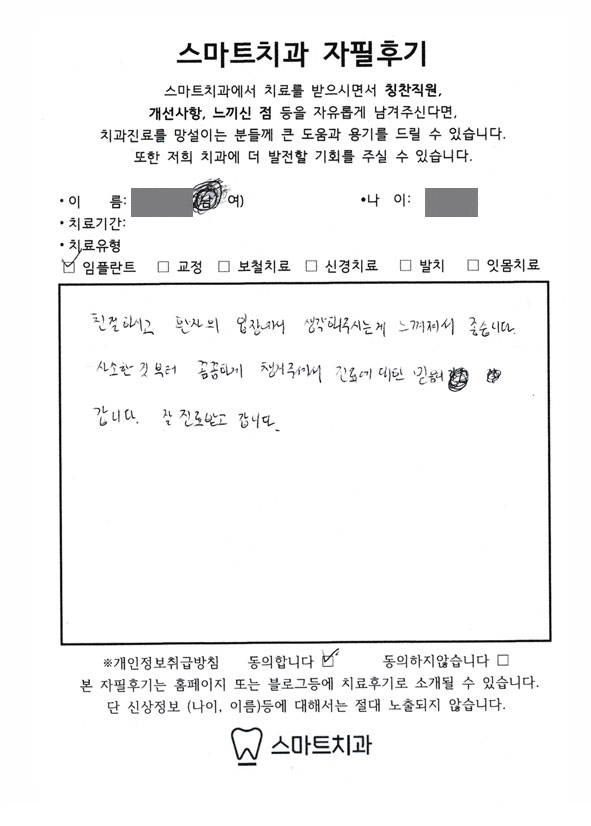 스마트치과 자필후기
스마트치과에서 치료를 받으시면서 칭찬직원,
개선사항, 느끼신 점 등을 자유롭게 남겨주신다면,
치과진료를 망설이는 분들께 큰 도움과 용기를 드릴 수 있습니다.
또한 저희 치과에 더 발전할 기회를 주실 수 있습니다.
•이 름: (남 여) •나 이:
•치료기간:
•치료유형
☑ 임플란트 □ 교정 □ 보철치료 □ 신경치료 □ 발치 □ 잇몸치료
친절하시고 환자의 입장에서 생각해주시는게 느껴져서 좋습니다.
사소한 것부터 꼼꼼하게 챙겨주셔서 진료에 대한 믿음이
갑니다. 잘 진료받고 갑니다.
※개인정보취급방침 동의합니다 ☑ 동의하지않습니다 □
본 자필후기는 홈페이지 또는 블로그등에 치료후기로 소개될 수 있습니다.
단 신상정보 (나이, 이름)등에 대해서는 절대 노출되지 않습니다.
스마트치과